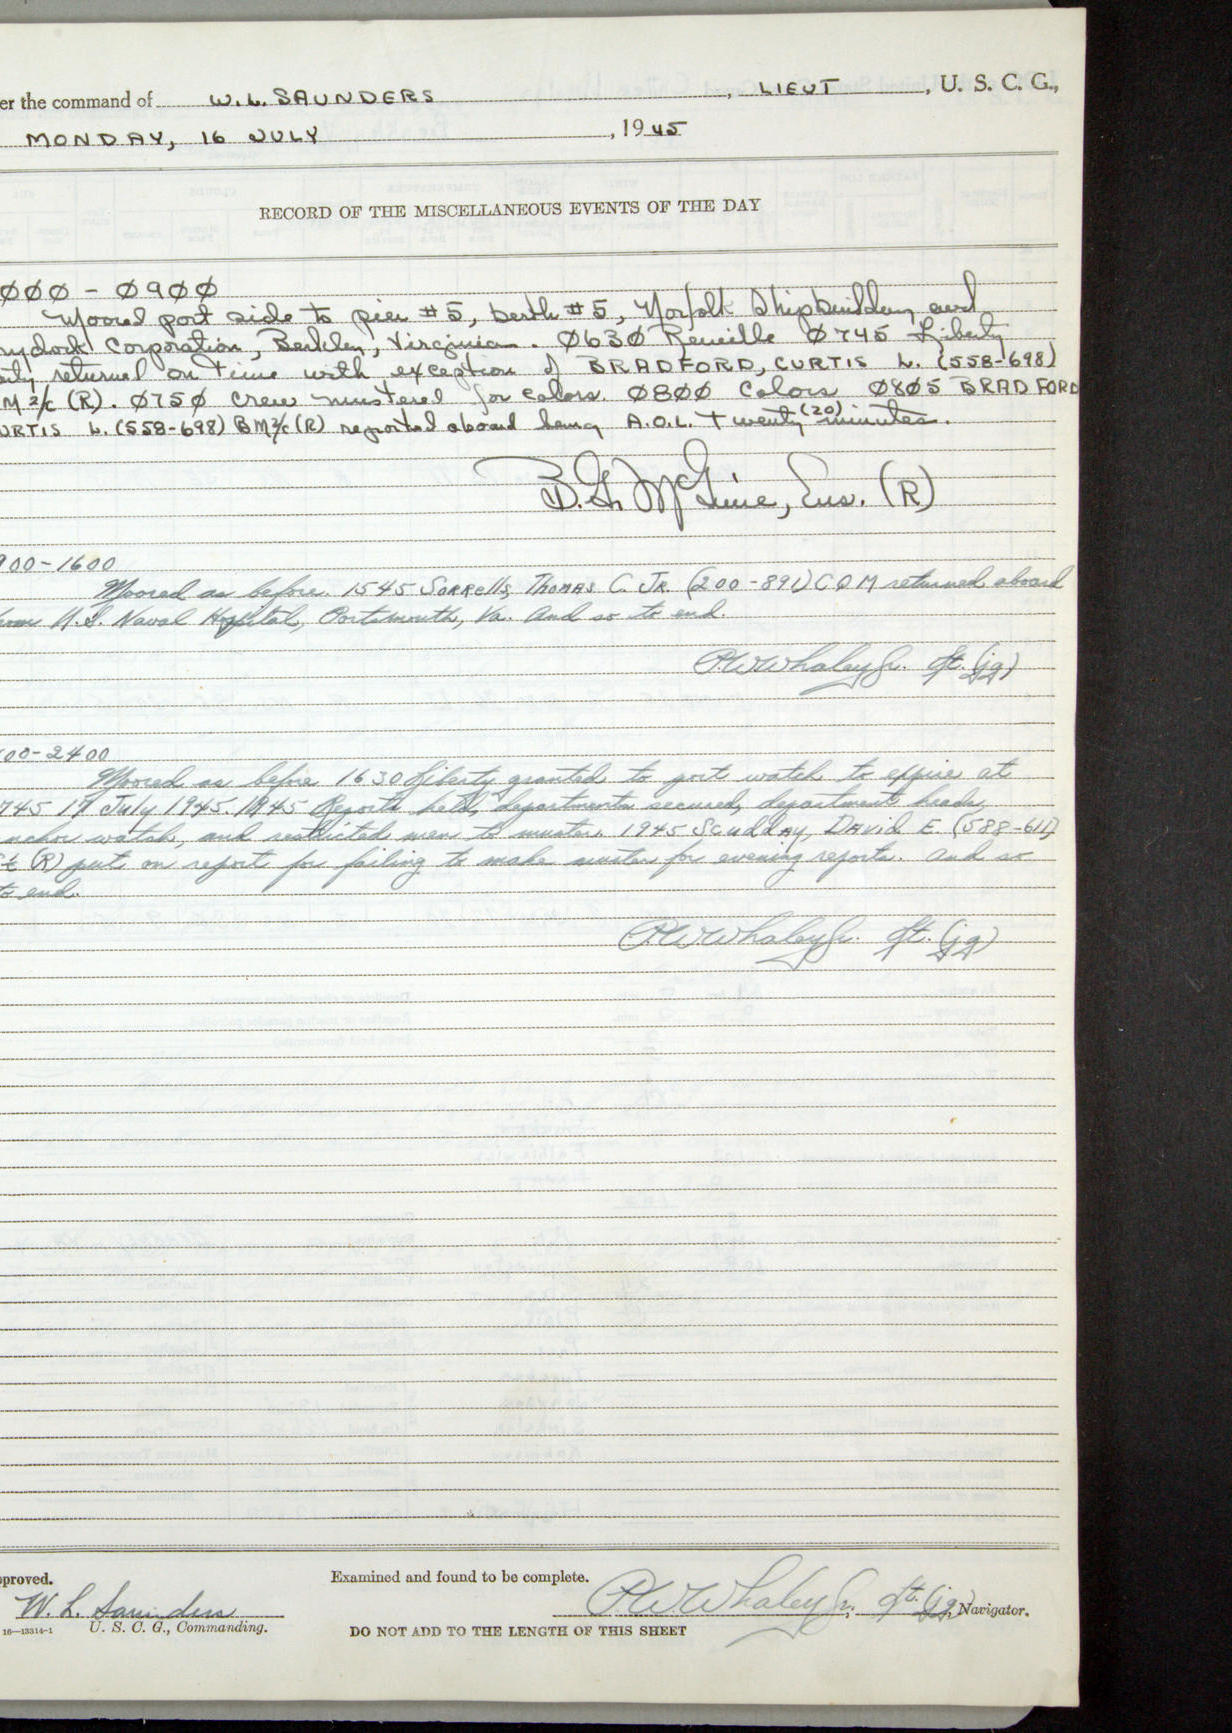 er the command of W. L. SAUNDERS, LIEUT, U. S. C. G.,
MONDAY, 16 JULY, 1945
RECORD OF THE MISCELLANEOUS EVENTS OF THE DAY
000 - 0900
Moored port side to pier #5, berth #5, Norfolk Shipbuilding and
rydock Corporation, Berkley, Virginia. 0630 Reveille 0745 Liberty
arty returned on time with exception of BRADFORD, CURTIS L. (558-698)
M 2/c (R). 0750 Crew mustered for colors. 0800 Colors 0805 BRADFORD
URTIS L. (558-698) BM 2/c (R) reported aboard being A.O.L. Twenty (20) minutes.
B. G. McGuire, Ens. (R)
900-1600
Moored as before. 1545 Sorrells, Thomas C. Jr. (200-891) CQM returned aboard
from U.S. Naval Hospital, Portsmouth, Va. And so to end.
P.W. Whaley Jr. Lt. (jg)
00-2400
Moored as before 1630 Liberty granted to port watch to expire at
745 17 July 1945. 1945 Reports held, departments secured, department heads,
nchor watch, and restricted men to muster. 1945 Scudday, David E. (588-611)
(R) put on report for failing to make muster for evening reports. And so
to end.
P.W. Whaley Jr. Lt. (jg)
pproved.
Examined and found to be complete.
W. L. Saunders
P.W. Whaley Jr., Lt. (jg), Navigator.
16—13314-1 U. S. C. G., Commanding.
DO NOT ADD TO THE LENGTH OF THIS SHEET